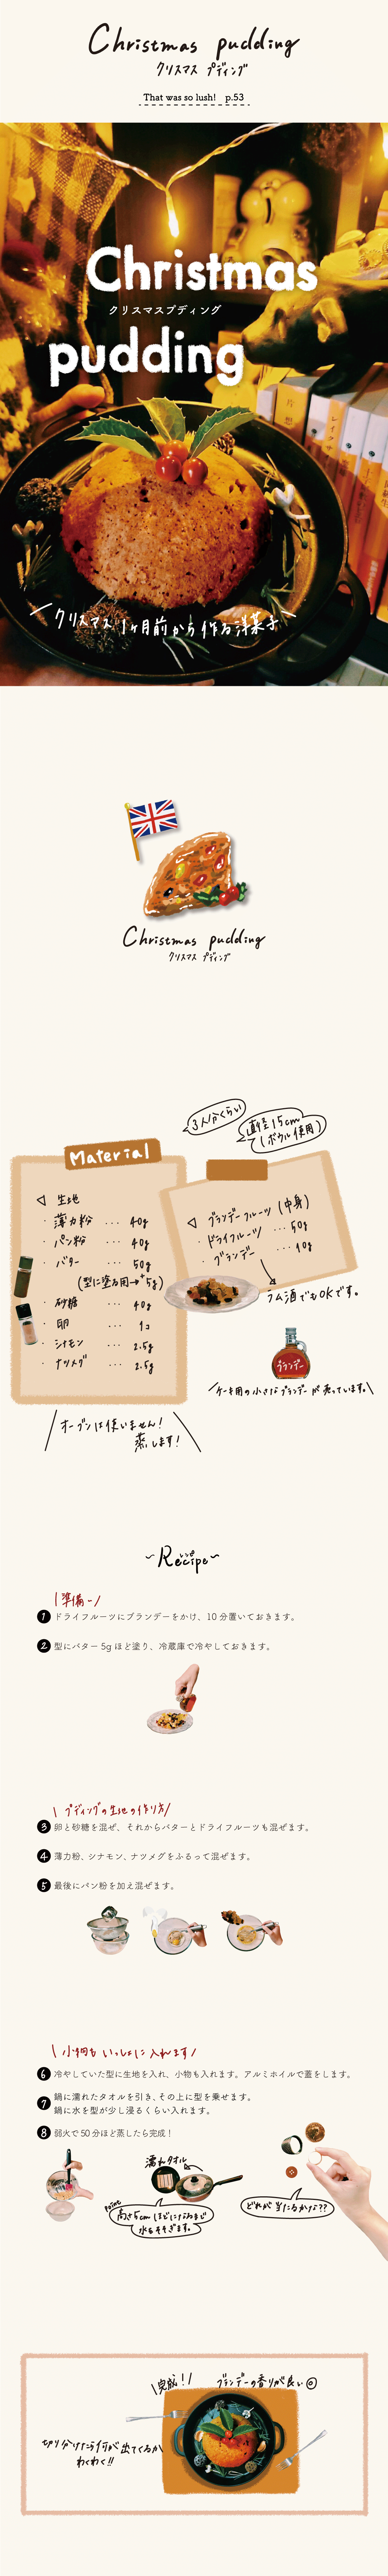 Christmas pudding
クリスマス プディング
That was so lush! p.53
Christmas
クリスマスプディング
pudding
クリスマス1ヶ月前から作る洋菓子
Christmas pudding
クリスマス プディング
3人分くらい
直径15cm
(ボウル使用)
Material
◁ 生地
・薄力粉 … 40g
・パン粉 … 40g
・バター … 50g
(型に塗る用→+5g)
・砂糖 … 40g
・卵 … 1コ
・シナモン … 2.5g
・ナツメグ … 2.5g
◁ ブランデーフルーツ(中身)
・ドライフルーツ … 50g
・ブランデー … 10g
ラム酒でもOKです。
ブランデー
ケーキ用の小さなブランデーが売っています。
オーブンは使いません!
蒸します!
~Recipe~
レシピ
準備ー
1 ドライフルーツにブランデーをかけ、10分置いておきます。
2 型にバター 5g ほど塗り、冷蔵庫で冷やしておきます。
プディングの生地の作り方
3 卵と砂糖を混ぜ、それからバターとドライフルーツも混ぜます。
4 薄力粉、シナモン、ナツメグをふるって混ぜます。
5 最後にパン粉を加え混ぜます。
小物もいっしょに入れます
6 冷やしていた型に生地を入れ、小物も入れます。アルミホイルで蓋をします。
7 鍋に濡れたタオルを引き、その上に型を乗せます。
鍋に水を型が少し浸るくらい入れます。
8 弱火で50分ほど蒸したら完成!
濡れタオル
point
高さ5cmほどになるまで
水をそそぎます。
どれが当たるかな??
完成!
ブランデーの香りが良い◎
切り分けたら何が出てくるか
わくわく!!